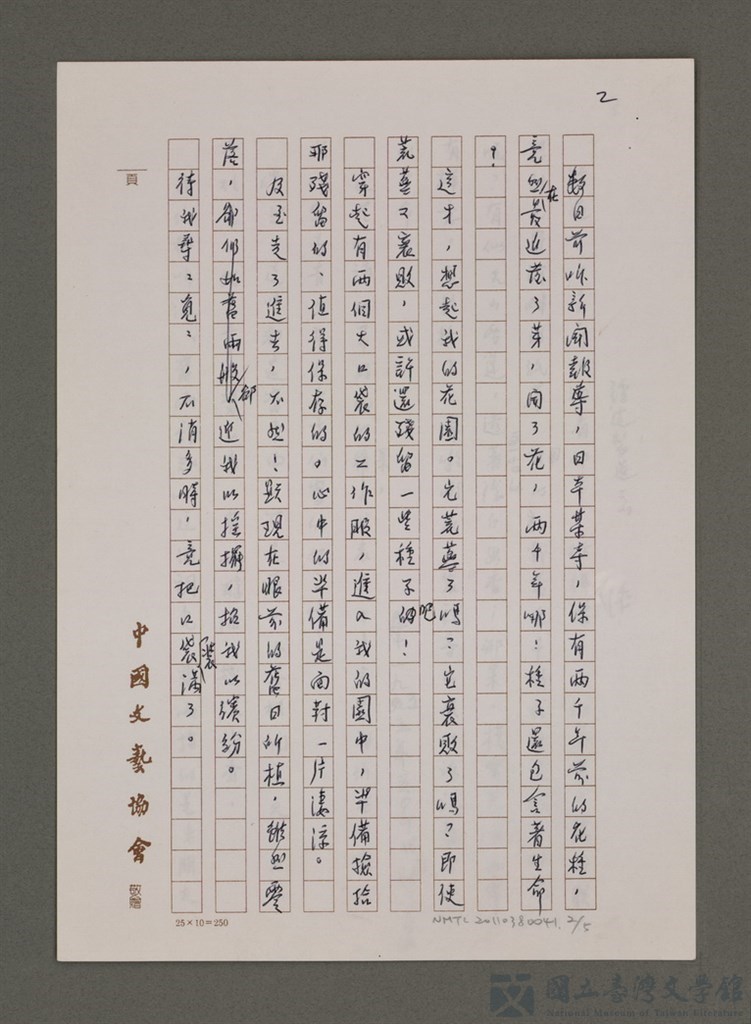 2
數日前昨新聞報導，日本某寺，保有兩千年前的花種，
竟然在最近發了芽，開了花，兩千年哪！種子還包含着生命
！
這才，想起我的花園。它荒蕪了嗎？它衰敗了嗎？即使
荒蕪又衰敗，或許還殘留一些種子吧！
穿起有兩個大口袋的工作服，進入我的園中，準備撿拾
那殘留的、值得保存的。心中的準備是面對一片淒涼。
及至走了進去，不然！顯現在眼前的舊日所植，雖然零
落，卻仍如舊雨般，卻迎我以搖擺，招我以繽紛。
待我尋尋覓覓，不消多時，竟把口袋裝滿了。
頁
中國文藝協會 敬贈
25×10=250
NMTL 20110380041. 2/5
國立臺灣文學館
National Museum of Taiwan Literature